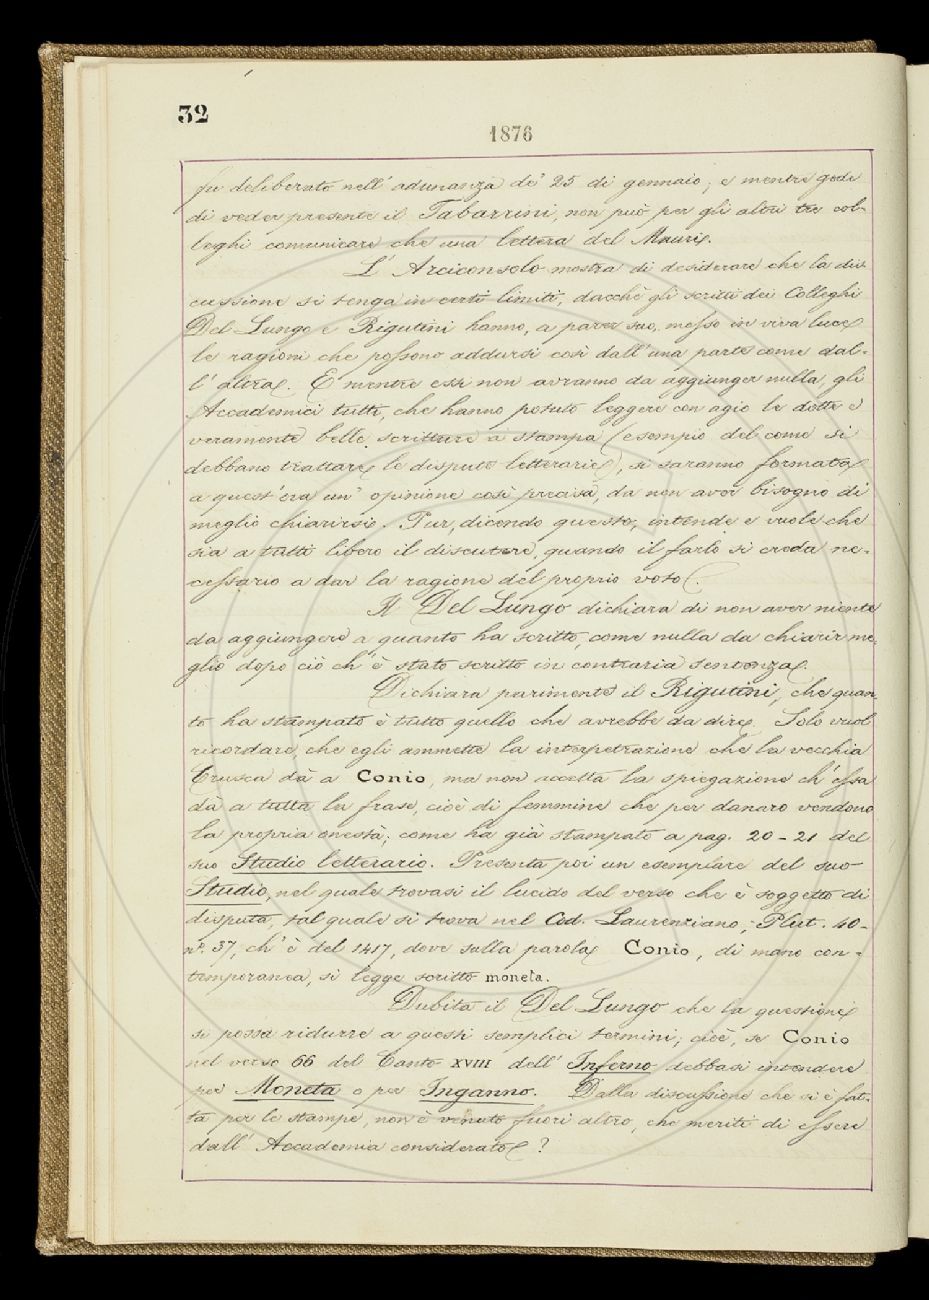 32
1876
fu deliberato nell' adunanza de' 25 di gennaio; e mentre gode
di veder presente il Tabarrini, non può per gli altri tre col-
leghi comunicare che una lettera del Mauri.
L' Arciconsolo mostra di desiderare che la dis-
cussione si tenga in certi limiti, dacchè gli scritti dei Colleghi
Del Lungo e Rigutini hanno, a parer suo, messo in viva luce
le ragioni che possono addursi così dall' una parte come dal-
l' altra. E mentre essi non avranno da aggiunger nulla, gli
Accademici tutti, che hanno potuto leggere con agio le dotte e
veramente belle scritture a stampa (esempio del come si
debbano trattare le dispute letterarie), si saranno formata
a quest' ora un' opinione così precisa, da non aver bisogno di
meglio chiarirsi. Pur, dicendo questo, intende e vuole che
sia a tutti libero il discutere, quando il farlo si creda ne-
cessario a dar la ragione del proprio voto.
Il Del Lungo dichiara di non aver niente
da aggiungere a quanto ha scritto, come nulla da chiarir me-
glio dopo ciò ch' è stato scritto in contraria sentenza.
Dichiara parimente il Rigutini, che quan-
to ha stampato è tutto quello che avrebbe da dire. Solo vuol
ricordare, che egli ammette la interpetrazione che la vecchia
Crusca dà a Conio, ma non accetta la spiegazione ch' essa
dà a tutta la frase, cioè di femmine che per danaro vendono
la propria onestà; come ha già stampato a pag. 20-21 del
suo Studio letterario. Presenta poi un esemplare del suo
Studio, nel quale trovasi il lucido del verso che è soggetto di
disputa, tal quale si trova nel Cod. Laurenziano, Plut. 40-
nº. 37, ch' è del 1417, dove sulla parola Conio, di mano con-
temporanea, si legge scritto moneta.
Dubita il Del Lungo che la questione
si possa ridurre a questi semplici termini; cioè, se Conio
nel verso 66 del Canto XVIII dell' Inferno debbasi intendere
per Moneta o per Inganno. Dalla discussione che si è fat-
ta per le stampe, non è venuto fuori altro, che meriti di essere
dall' Accademia considerato?